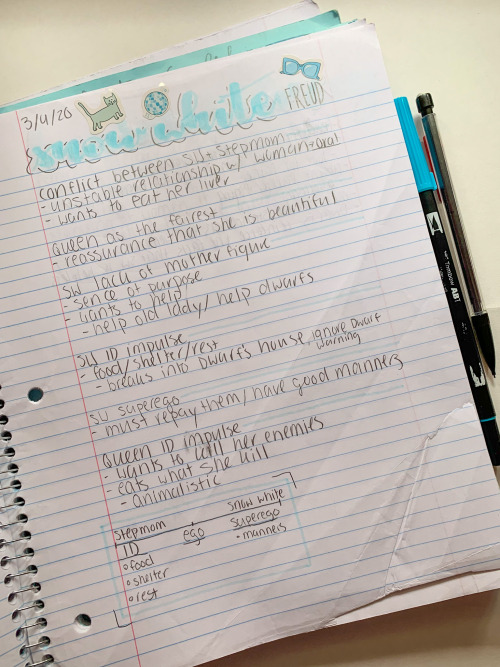 3/4/20
snow white FREUD
Conflict between SW + Stepmom
- unstable relationship w/ woman + oral
- wants to eat her liver
Queen as the fairest
- reassurance that she is beautiful
SW lack of mother figure
- sence of purpose
- wants to help
- help old lady/help dwarfs
SW ID impulse
- food/shelter/rest
- breaks into Dwarf's house, ignore Dwarf warning
SW superego
- must repay them/have good manners
Queen ID impulse
- wants to kill her enemies
- eats what she kill
- animalistic
Stepmom snow white
ID ego superego
• food • manners
• shelter
• rest
Tombow ABT